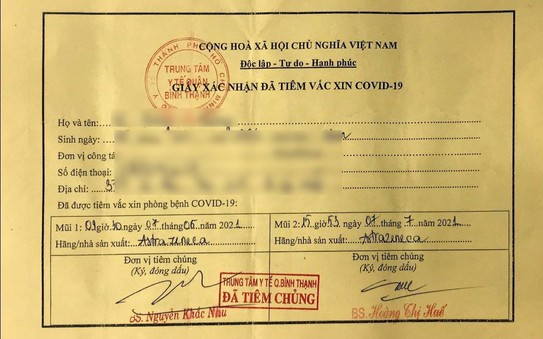 CỘNG HOÀ XÃ HỘI CHỦ NGHĨA VIỆT NAM
Độc lập - Tự do - Hanh phúc
THÀNH PHỐ HỒ CHÍ MINH
TRUNG TÂM
Y TẾ QUẬN
BÌNH THẠNH
GIẤY XÁC NHẬN ĐÃ TIÊM VẮC XIN COVID-19
Họ và tên:
Sinh ngày:
Đơn vị công tá
Số điện thoại:
Địa chỉ:
Đã được tiêm vắc xin phòng bệnh COVID-19:
Mũi 1: 09 giờ 30 ngày 07 tháng 05 năm 2021
Hãng/nhà sản xuất: Astrazeneca
Đơn vị tiêm chủng
(Ký, đóng dấu)
BS. Nguyễn Khắc Nhu
Mũi 2: 15 giờ 53 ngày 07 tháng 7 năm 2021
Hãng/nhà sản xuất: Astrazeneca
Đơn vị tiêm chủng
(Ký, đóng dấu)
TRUNG TÂM Y TẾ Q.BÌNH THẠNH
ĐÃ TIÊM CHỦNG
BS. Hoàng Thị Huế